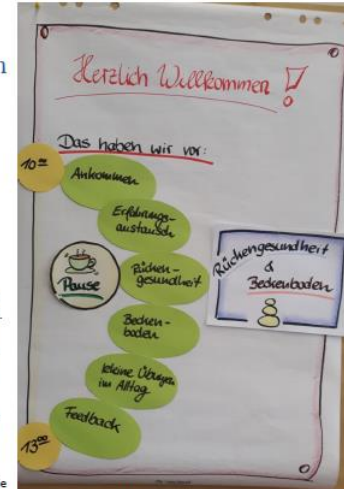 Herzlich Willkommen!
Das haben wir vor:
10⁰⁰
Ankommen
Erfahrungs-
austausch
Pause
Rücken-
gesundheit
Rückengesundheit
&
Beckenboden
Becken-
boden
kleine Übungen
im Alltag
Feedback
13⁰⁰